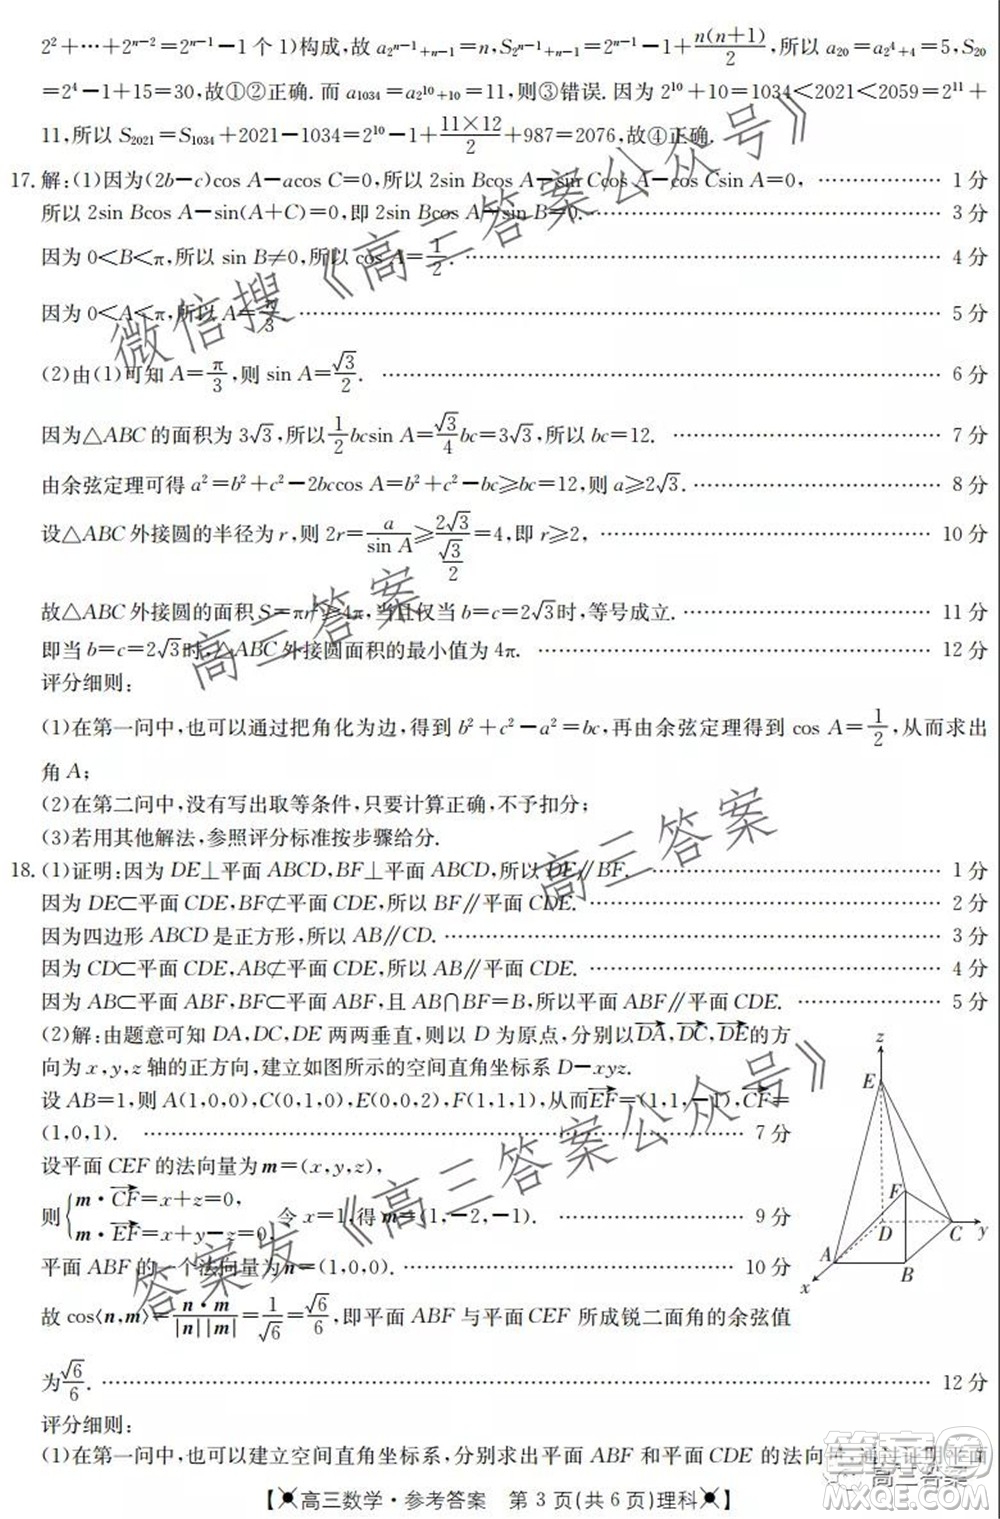 2²+…+2ⁿ⁻²=2ⁿ⁻¹-1个1)构成,故a_{2ⁿ⁻¹+n-1}=n,S_{2ⁿ⁻¹+n-1}=2ⁿ⁻¹-1+n(n+1)/2,所以a₂₀=a_{2⁴+4}=5,S₂₀
=2⁴-1+15=30,故①②正确.而a₁₀₃₄=a_{2¹⁰+10}=11,则③错误.因为2¹⁰+10=1034<2021<2059=2¹¹+
11,所以S₂₀₂₁=S₁₀₃₄+2021-1034=2¹⁰-1+11×12/2+987=2076,故④正确.
17.解:(1)因为(2b-c)cos A-acos C=0,所以2sin Bcos A-sin Ccos A-cos Csin A=0,……1分
所以2sin Bcos A-sin(A+C)=0,即2sin Bcos A-sin B=0.……3分
因为0<B<π,所以sin B≠0,所以cos A=1/2.……4分
因为0<A<π,所以A=π/3.……5分
(2)由(1)可知A=π/3,则sin A=√3/2.……6分
因为△ABC的面积为3√3,所以1/2bcsin A=√3/4bc=3√3,所以bc=12.……7分
由余弦定理可得a²=b²+c²-2bccos A=b²+c²-bc≥bc=12,则a≥2√3.……8分
设△ABC外接圆的半径为r,则2r=a/sin A≥2√3/(√3/2)=4,即r≥2,……10分
故△ABC外接圆的面积S=πr²≥4π,当且仅当b=c=2√3时,等号成立.……11分
即当b=c=2√3时,△ABC外接圆面积的最小值为4π.……12分
评分细则:
(1)在第一问中,也可以通过把角化为边,得到b²+c²-a²=bc,再由余弦定理得到cos A=1/2,从而求出
角A;
(2)在第二问中,没有写出取等条件,只要计算正确,不予扣分;
(3)若用其他解法,参照评分标准按步骤给分.
18.(1)证明:因为DE⊥平面ABCD,BF⊥平面ABCD,所以DE∥BF.……1分
因为DE⊂平面CDE,BF⊄平面CDE,所以BF∥平面CDE.……2分
因为四边形ABCD是正方形,所以AB∥CD.……3分
因为CD⊂平面CDE,AB⊄平面CDE,所以AB∥平面CDE.……4分
因为AB⊂平面ABF,BF⊂平面ABF,且AB∩BF=B,所以平面ABF∥平面CDE.……5分
(2)解:由题意可知DA,DC,DE两两垂直,则以D为原点,分别以DA,DC,DE的方
向为x,y,z轴的正方向,建立如图所示的空间直角坐标系D-xyz.
设AB=1,则A(1,0,0),C(0,1,0),E(0,0,2),F(1,1,1),从而EF=(1,1,-1),CF=
(1,0,1).……7分
设平面CEF的法向量为m=(x,y,z),
则{m·CF=x+z=0,
m·EF=x+y-z=0,令x=1,得m=(1,-2,-1).……9分
平面ABF的一个法向量为n=(1,0,0).……10分
故cos⟨n,m⟩=n·m/|n||m|=1/√6=√6/6,即平面ABF与平面CEF所成锐二面角的余弦值
为√6/6.……12分
z
E
F
D
C
y
A
B
x
评分细则:
(1)在第一问中,也可以建立空间直角坐标系,分别求出平面ABF和平面CDE的法向量,通过证明平面
【高三数学·参考答案 第3页(共6页)理科】
微信搜《高三答案公众号》
高三答案
高三答案
答案发《高三答案公众号》
高三答案
答案圈
MXQE.COM